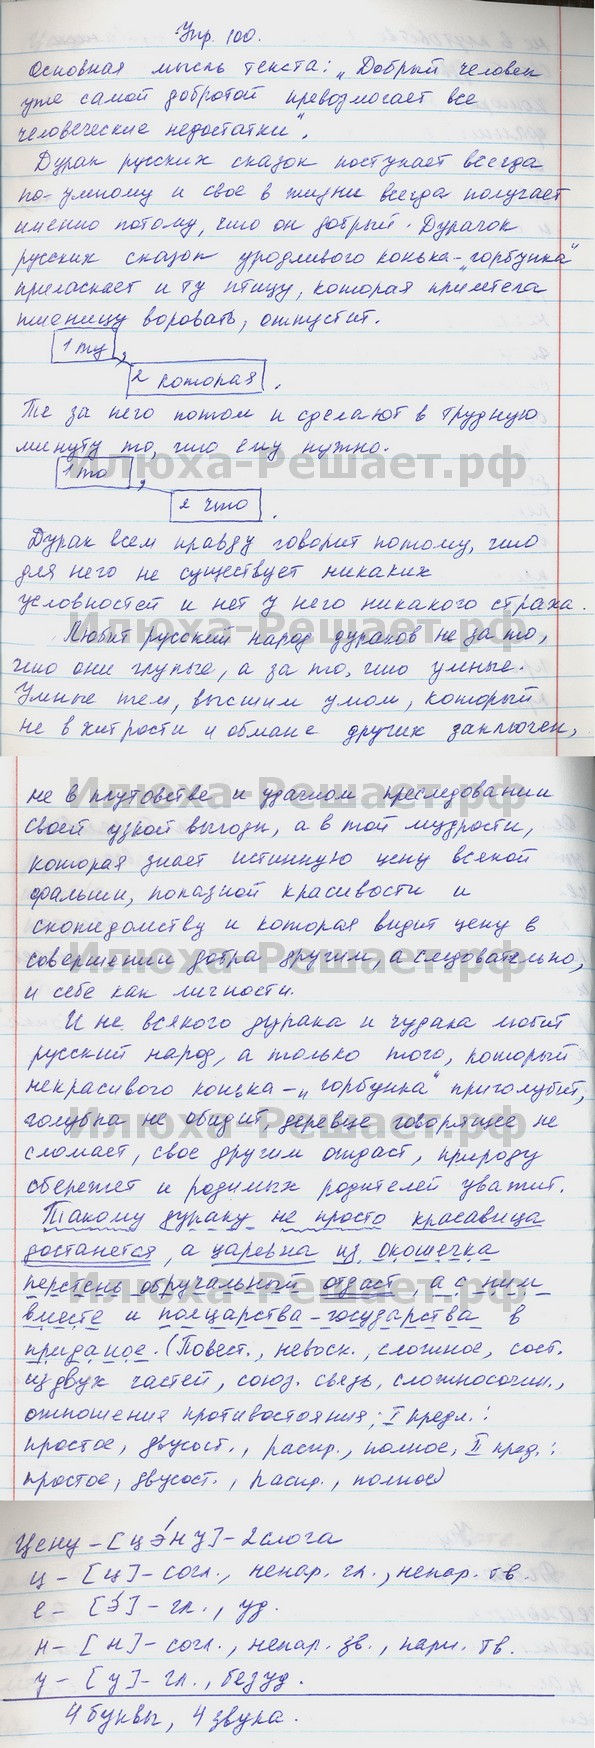 Упр. 100.
Основная мысль текста: „Добрый человек
уже самой добротой превозмогает все
человеческие недостатки".
Дурак русских сказок поступает всегда
по-умному и свое в жизни всегда получает
именно потому, что он добрый. Дурачок
русских сказок уродливого конька-„горбунка"
приласкает и ту птицу, которая прилетела
пшеницу воровать, отпустит.
1 ту ,
2 которая .
Те за него потом и сделают в трудную
минуту то, что ему нужно.
Илюха-Решает.рф
1 то ,
2 что .
Дурак всем правду говорит потому, что
для него не существует никаких
условностей и нет у него никакого страха.
Илюха-Решает.рф
Любит русский народ дураков не за то,
что они глупые, а за то, что умные.
Умные тем, высшим умом, который
не в хитрости и обмане других заключен,
Илюха-Решает.рф
не в плутовстве и удачном преследовании
своей узкой выгоды, а в той мудрости,
которая знает истинную цену всякой
фальши, показной красивости и
скопидомству и которая видит цену в
Илюха-Решает.рф
совершении добра другим, а следовательно,
и себе как личности.
И не всякого дурака и чудака любит
русский народ, а только того, который
некрасивого конька-„горбунка" приголубит,
голубка не обидит, деревце говорящее не
Илюха-Решает.рф
сломает, свое другим отдаст, природу
сбережет и родимых родителей уважит.
Такому дураку не просто красавица
достанется, а царевна из окошечка
перстень обручальный отдаст, а с ним
Илюха-Решает.рф
вместе и полцарства-государства в
приданое. (Повест., невоск., сложное, сост.
из двух частей, союз. связь, сложносочин.,
отношения противостояния; I предл.:
простое, двусост., распр., полное, II пред.:
простое, двусост., распр., полное)
Цену - [цэ́ну] - 2 слога
ц - [ц] - согл., непар. гл., непар. тв.
е - [э́] - гл., уд.
н - [н] - согл., непар. зв., парн. тв.
у - [у] - гл., безуд.
4 буквы, 4 звука.